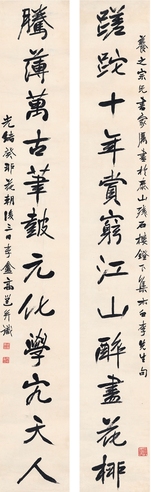 養之宗兄書家屬書於泰山殘石樓鐙下集太白李先生句
蹉跎十年賞窮江山醉盡花柳
騰薄萬古筆鼓元化學究天人
光緒癸卯花朝後三日李